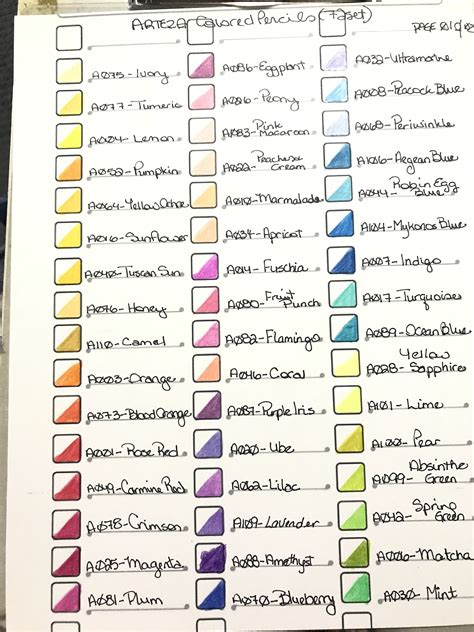 ARTEZA Colored Pencils (72set)
PAGE 01 of 02
A075-Ivory
A077-Tumeric
A004-Lemon
A052-Pumpkin
A064-Yellow Ochre
A016-Sunflower
A040-Tuscan Sun
A076-Honey
A110-Camel
A003-Orange
A073-Blood Orange
A001-Rose Red
A049-Carmine Red
A078-Crimson
A025-Magenta
A081-Plum
A086-Eggplant
A026-Peony
A083-Pink Macaroon
A022-Peaches & Cream
A010-Marmalade
A034-Apricot
A014-Fuschia
A080-Fruit Punch
A082-Flamingo
A046-Coral
A087-Purple Iris
A020-Ube
A062-Lilac
A109-Lavender
A088-Amethyst
A070-Blueberry
A032-Ultramarine
A008-Peacock Blue
A068-Periwinkle
A106-Aegean Blue
A044-Robin Egg Blue
A104-Mykonos Blue
A007-Indigo
A017-Turquoise
A089-Ocean Blue
A028-Yellow Sapphire
A101-Lime
A100-Pear
A099-Absinthe Green
A042-Spring Green
A006-Matcha
A030-Mint